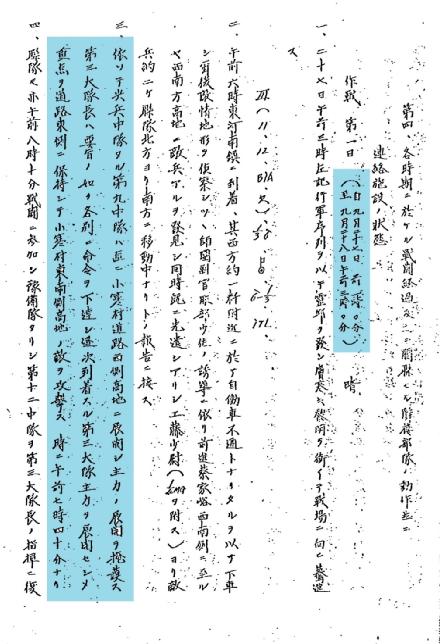 第四 各時期ニ於ケル戦闘経過並ニ之ニ関聯セル隣接部隊ノ動作並ニ
連絡施設ノ状態
作戦 第一日(自九月二十七日 前三時〇分 至九月二十八日午前三時〇分) 晴
一、二十七日午前三時左記行軍序列ヲ以テ霊邱ヲ発シ 黎明ヲ衝イテ戦場ニ向ヒ驀進
ス
二、午前六時東河南鎮ニ到着、其西方約一粁附近ニ於テ自動車不通トナリタルヲ以テ下車
シ爾後敵情地形ヲ偵察シツヽ師団副官服部少佐ノ誘導ニ依リ前進蔡家峪西南側ニ至ル
ヤ西南方高地ニ敵兵アルヲ発見シ同時既ニ先遣シアリシ工藤少尉( ヲ附ス)ヨリ敵
兵約 聯隊北方ヨリ南方ニ移動中ナリトノ報告ニ接ス
三、依リテ尖兵中隊タル第九中隊ハ直ニ小寒村道路西側高地ニ展開シ主力ノ展開ヲ掩護ス
第三大隊長ハ要旨ノ如キ各別ノ命令ヲ下達シ逐次到着スル第三大隊主力ヲ展開セシメ
重点ヲ道路東側ニ保持シテ小寒村東南側高地ノ敵ヲ攻撃ス 時ニ午前七時四十分ナリ
四、聯隊モ亦午前八時十分戦闘ニ参加シ予備隊タリシ第十二中隊ヲ第三大隊長ノ指揮ニ復